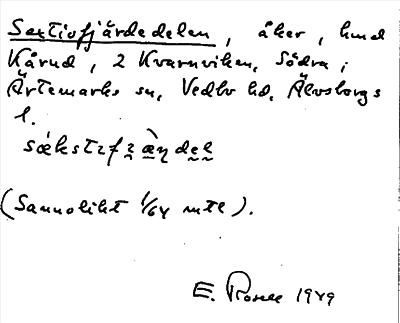 Sextiofjärdedelen, åker, hmd
Kårud, 2 Kvarnviken, Södra i
Ärtemarks sn, Vedbo hd, Älvsborgs
l.
(Sannolikt 1/64 mtl).
E. Rosell 1949